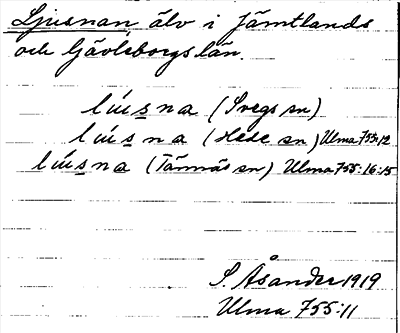 Ljusnan, älv i Jämtlands
och Gävleborgs län.
líusna (Svegs sn)
líusna (Hede sn) Ulma 755:12
líusna (Tännäs sn) Ulma 755:16:15
S. Åsander 1919
Ulma 755:11